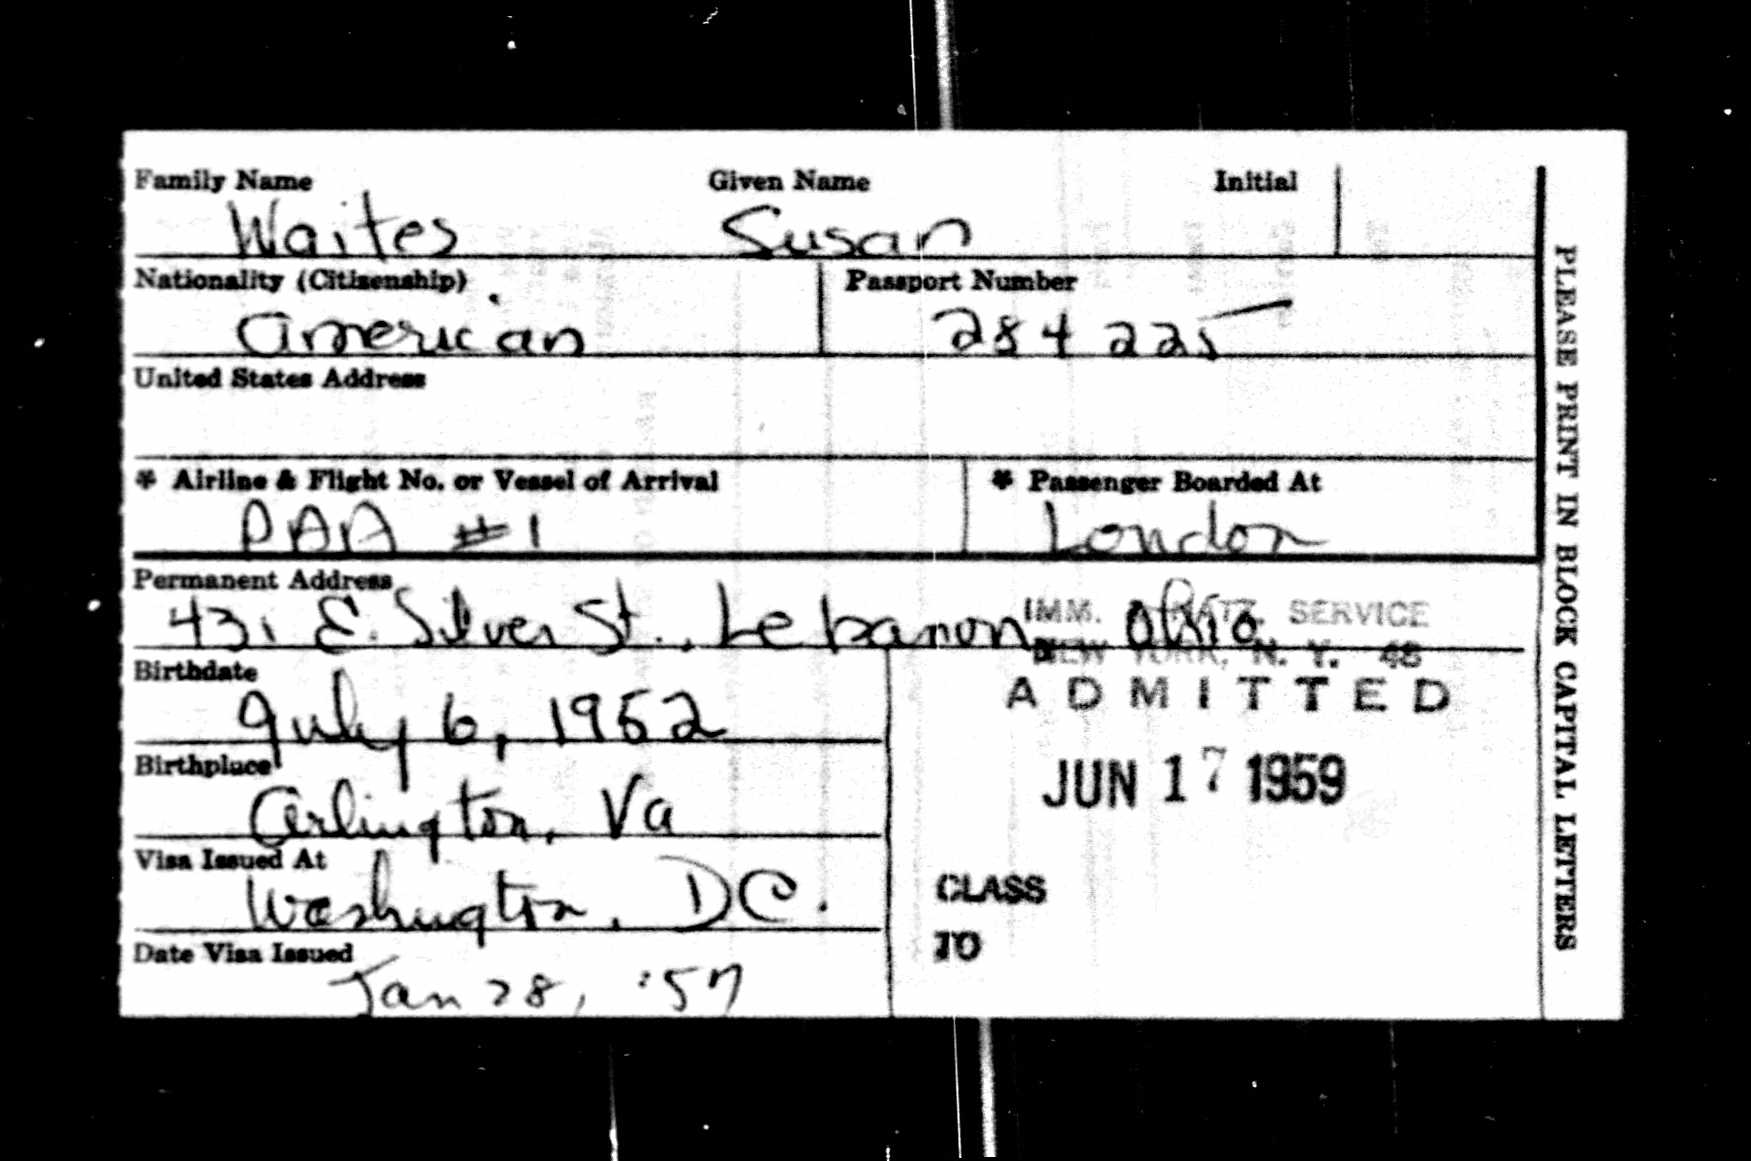 Family Name Given Name Initial
Waites Susan
Nationality (Citizenship) Passport Number
American 284225
United States Address
* Airline & Flight No. or Vessel of Arrival * Passenger Boarded At
PAA #1 London
Permanent Address
431 E. Silver St., Lebanon, Ohio
IMM. & NATZ. SERVICE
NEW YORK, N. Y. 48
ADMITTED
Birthdate
July 6, 1952
JUN 17 1959
Birthplace
Arlington, Va
Visa Issued At
Washington, DC.
CLASS
TO
Date Visa Issued
Jan 28, '57
PLEASE PRINT IN BLOCK CAPITAL LETTERS